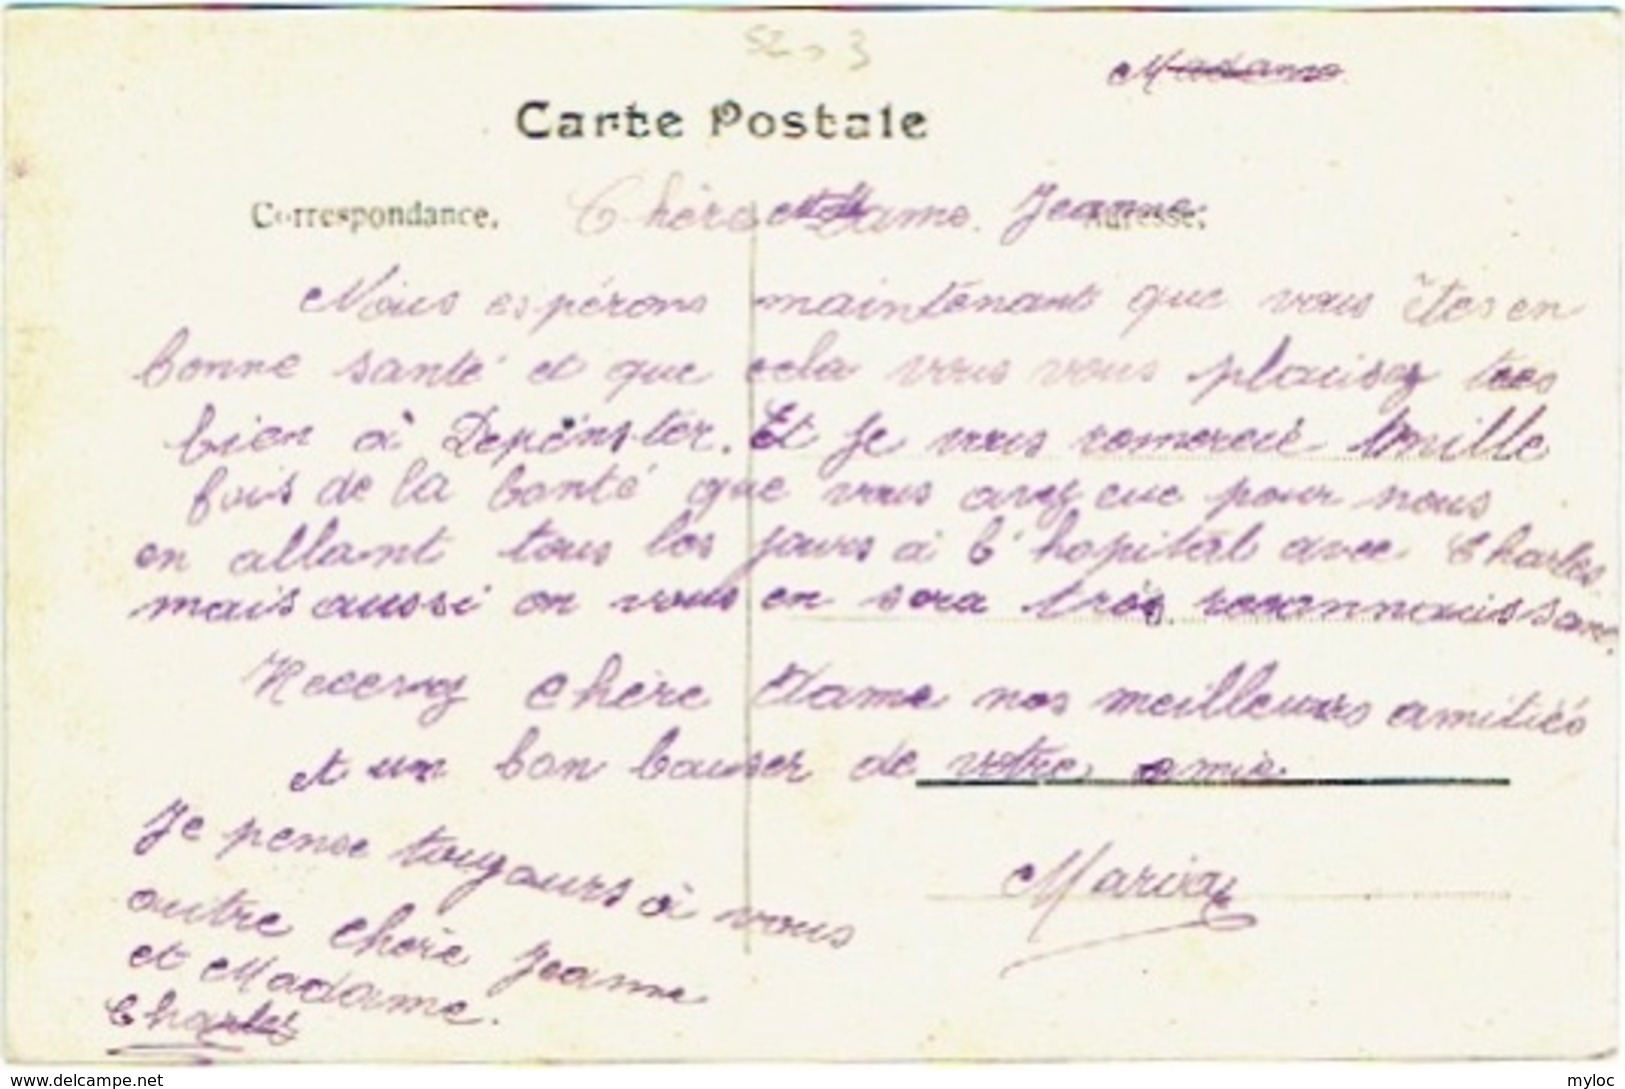 52 3
Madame
Carte Postale
Correspondance.
Adresse:
Chère Madame. Jeanne
Nous espérons maintenant que vous êtes en
bonne santé et que cela vous vous plaisez tres
bien à Depënster. Et je vous remercie 1 mille
fois de la bonté que vous avez eue pour nous
en allant tous les jours à l'hopital avec Charles.
mais aussi on vous en sera très reconnaissant.
Recevez chère Dame nos meilleurs amitiés
et un bon baiser de votre amie
Maria
Je pense toujours à vous
autre chère Jeanne
et Madame.
Charles
www.delcampe.net
myloc